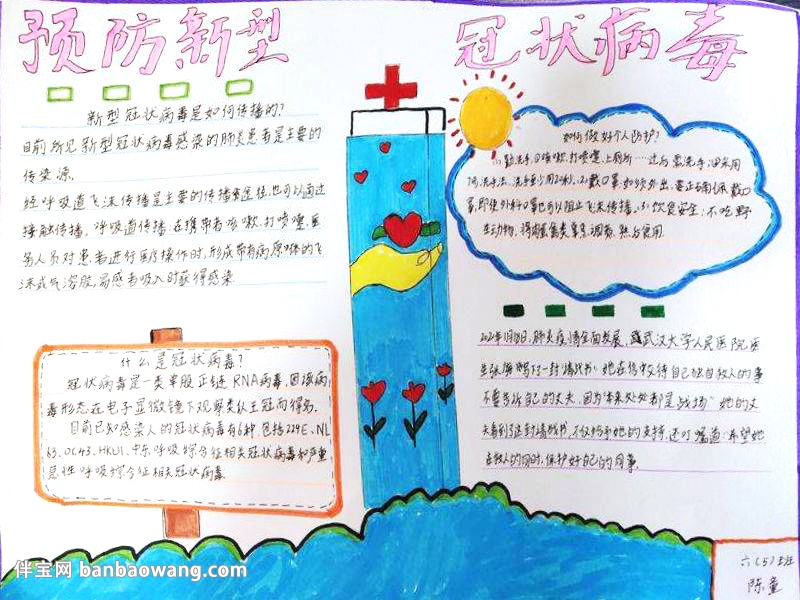 预防新型
冠状病毒
新型冠状病毒是如何传播的?
目前所见新型冠状病毒感染的肺炎患者是主要的
传染源.
经呼吸道飞沫传播是主要的传播途径,也可以通过
接触传播.呼吸道传播.在携带者咳嗽.打喷嚏.医
务人员对患者进行医疗操作时,形成带有病原体的飞
沫或气溶胶,易感者吸入时获得感染
什么是冠状病毒?
冠状病毒是一类单股正链RNA病毒,因该病
毒形态在电子显微镜下观察类似王冠而得名.
目前已知感染人的冠状病毒有6种,包括229E、NL
63、OC43、HKU1、中东呼吸综合征相关冠状病毒和严重
急性呼吸综合征相关冠状病毒
如何做好个人防护?
勤洗手,咳嗽.打喷嚏,上厕所……过后要洗手,采用
洗手法、洗手至少用20秒.(2)戴口罩:如须外出,要正确佩戴口
罩,即使外科口罩也可以阻止飞沫传播.(3)饮食安全:不吃野
生动物,食用.
肺炎疫情全面发展,武汉大学人民医院医
生张写下一封请战书:她在得救待自己独自救人的事
不要告诉自己的丈夫,因为"本来处处都是战场"她的丈
夫看到了这封请战书,不仅给予她的支持,还叮嘱道:希望她
在救人的同时,保护好自己的同事.
六(5)班
陈童
伴宝网 banbaowang.com